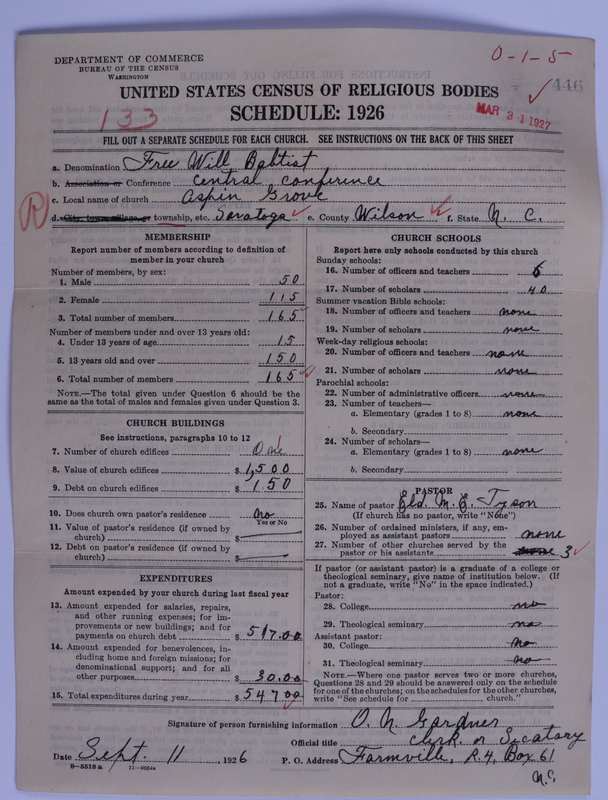 DEPARTMENT OF COMMERCE
BUREAU OF THE CENSUS
WASHINGTON
0-1-5
446
UNITED STATES CENSUS OF RELIGIOUS BODIES
133
SCHEDULE: 1926
MAR 31 1927
FILL OUT A SEPARATE SCHEDULE FOR EACH CHURCH. SEE INSTRUCTIONS ON THE BACK OF THIS SHEET
a. Denomination Free Will Babtist
b. Association or Conference Central Conference
c. Local name of church Aspin Grove
R
d. City, town, village, or township, etc. Saratoga e. County Wilson f. State N. C.
MEMBERSHIP
Report number of members according to definition of member in your church
Number of members, by sex:
1. Male 50
2. Female 115
3. Total number of members 165
Number of members under and over 13 years old:
4. Under 13 years of age 15
5. 13 years old and over 150
6. Total number of members 165
NOTE.—The total given under Question 6 should be the same as the total of males and females given under Question 3.
CHURCH BUILDINGS
See instructions, paragraphs 10 to 12
7. Number of church edifices One 1
8. Value of church edifices $ 1,500
9. Debt on church edifices $ 150
10. Does church own pastor's residence no
Yes or No
11. Value of pastor's residence (if owned by church) $
12. Debt on pastor's residence (if owned by church) $
EXPENDITURES
Amount expended by your church during last fiscal year
13. Amount expended for salaries, repairs, and other running expenses; for improvements or new buildings; and for payments on church debt $ 517.00
14. Amount expended for benevolences, including home and foreign missions; for denominational support; and for all other purposes $ 30.00
15. Total expenditures during year $ 547.00
CHURCH SCHOOLS
Report here only schools conducted by this church
Sunday schools:
16. Number of officers and teachers 6
17. Number of scholars 40
Summer vacation Bible schools:
18. Number of officers and teachers none
19. Number of scholars none
Week-day religious schools:
20. Number of officers and teachers none
21. Number of scholars none
Parochial schools:
22. Number of administrative officers none
23. Number of teachers—
a. Elementary (grades 1 to 8) none
b. Secondary
24. Number of scholars—
a. Elementary (grades 1 to 8) none
b. Secondary
PASTOR
25. Name of pastor Eld. M. E. Tyson
(If church has no pastor, write "None")
26. Number of ordained ministers, if any, employed as assistant pastors none
27. Number of other churches served by the pastor or his assistants none 3
If pastor (or assistant pastor) is a graduate of a college or theological seminary, give name of institution below. (If not a graduate, write "No" in the space indicated.)
Pastor:
28. College no
29. Theological seminary no
Assistant pastor:
30. College no
31. Theological seminary no
NOTE.—Where one pastor serves two or more churches, Questions 28 and 29 should be answered only on the schedule for one of the churches; on the schedules for the other churches, write "See schedule for church."
Signature of person furnishing information O. N. Gardner
Official title Clerk or Secatary
Date Sept. 11, 1926 P. O. Address Farmville, R. 4, Box 61
N.C.
8-5518a 11-9054a